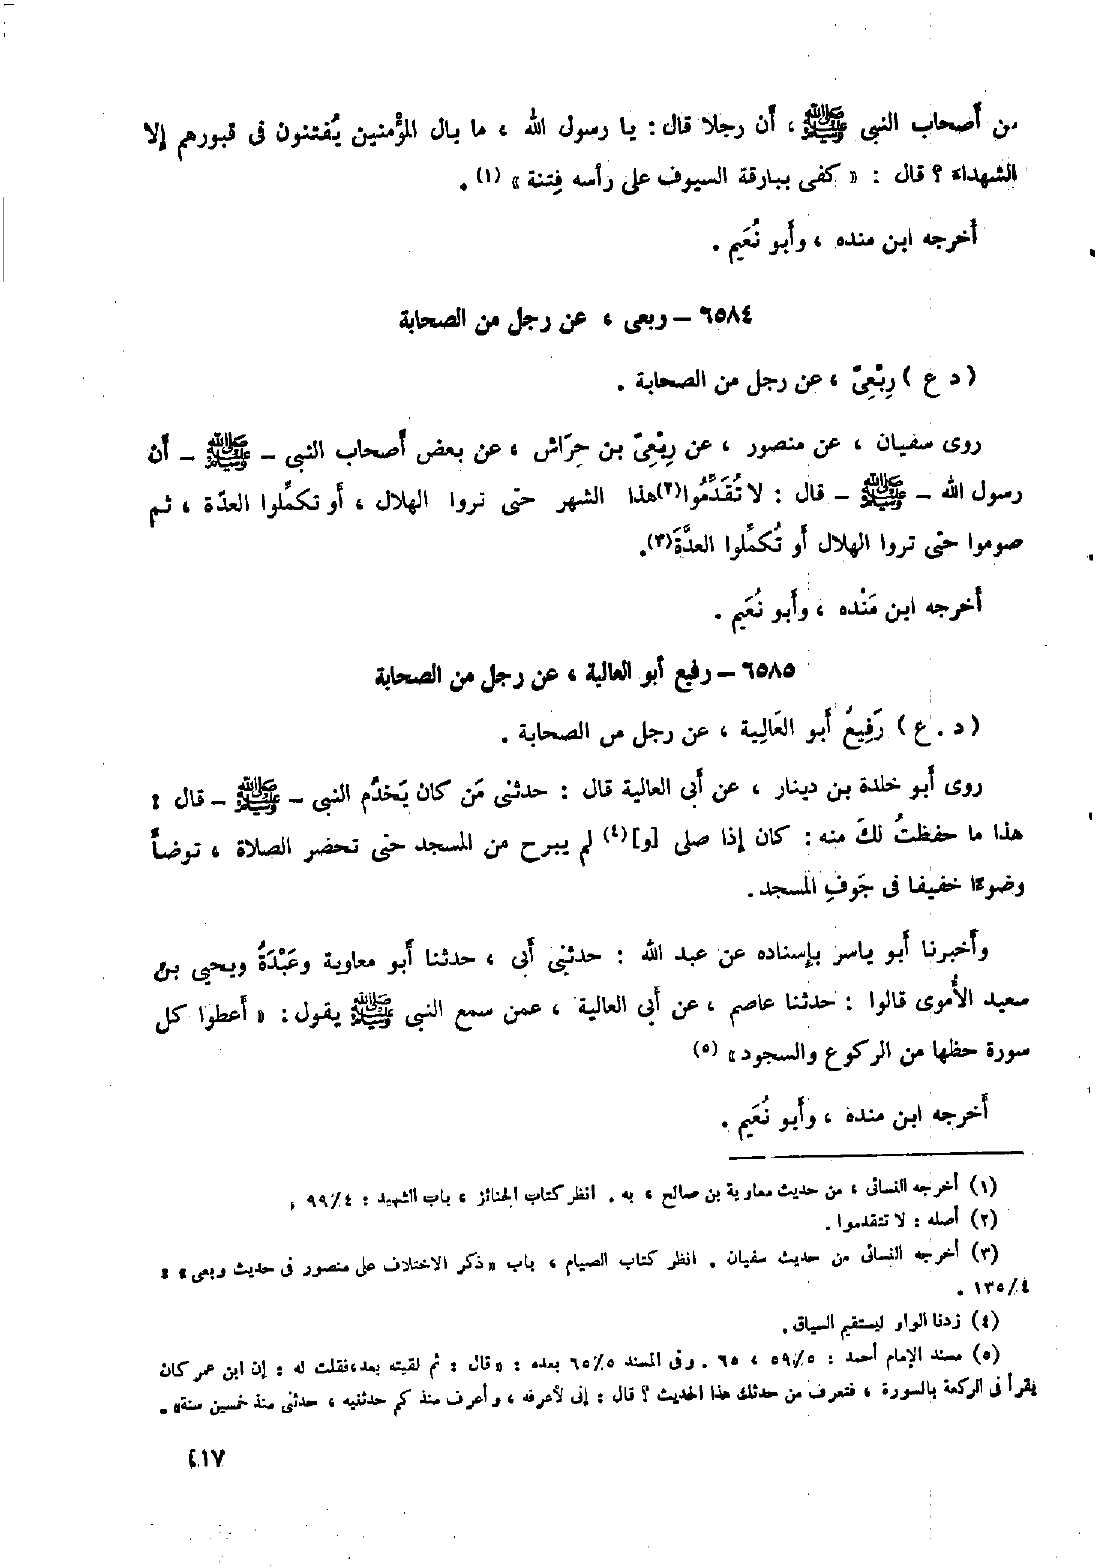 من أَصحاب النبى ﷺ ، أَن رجلا قال : يا رسول الله ، ما بال المؤْمنين يُفتنون فى قبورهم إلا
الشهداءَ ؟ قال : « كفى ببارقة السيوف على رأسه فِتنة » (١) .
أَخرجه ابن منده ، وأَبو نُعَيم .
٦٥٨٤ – ربعى ، عن رجل من الصحابة
( د ع ) رِبْعِىّ ، عن رجل من الصحابة .
روى سفيان ، عن منصور ، عن رِبْعِىّ بن حِرَاش ، عن بعض أَصحاب النبى – ﷺ – أَن
رسول الله – ﷺ – قال : لا تُقَدِّمُوا(٢) هذا الشهر حتى تروا الهلال ، أَو تكملوا العدّة ، ثم
صوموا حتى تروا الهلال أَو تُكمِّلوا العدَّةَ(٣).
أَخرجه ابن مَنْده ، وأَبو نُعَيم .
٦٥٨٥ – رفيع أبو العالية ، عن رجل من الصحابة
( د . ع ) رَفِيعُ أَبو العَالِية ، عن رجل من الصحابة .
روى أَبو خلدة بن دينار ، عن أَبى العالية قال : حدثنى مَن كان يَخدُم النبى – ﷺ – قال :
هذا ما حفظتُ لكَ منه : كان إذا صلى [و](٤) لم يبرح من المسجد حتى تحضر الصلاة ، توضأَ
وضوءًا خفيفا فى جَوفِ المسجد .
وأَخبرنا أَبو ياسر بإسناده عن عبد الله : حدثنى أَبى ، حدثنا أَبو معاوية وعَبْدَةُ ويحيى بن
سعيد الأُموى قالوا : حدثنا عاصم ، عن أَبى العالية ، عمن سمع النبى ﷺ يقول : « أَعطوا كل
سورة حظها من الركوع والسجود » (٥)
أَخرجه ابن منده ، وأَبو نُعَيم .
(١) أخرجه النسائى ، من حديث معاوية بن صالح ، به . انظر كتاب الجنائز ، باب الشهيد : ٩٩/٤ ،
(٢) أصله : لا تتقدموا .
(٣) أخرجه النسائى من حديث سفيان . انظر كتاب الصيام ، باب « ذكر الاختلاف على منصور فى حديث ربعى » :
١٣٥/٤ .
(٤) زدنا الواو ليستقيم السياق .
(٥) مسند الإمام أحمد : ٥٩/٥ ، ٦٥ . وفى المسند ٦٥/٥ بعده : « قال : ثم لقيته بعد ، فقلت له : إن ابن عمر كان
يقرأ فى الركعة بالسورة ، فتعرف من حدثك هذا الحديث ؟ قال : إنى لأعرفه ، وأعرف منذ كم حدثنيه ، حدثنى منذ خمسين سنة » .
٤١٧